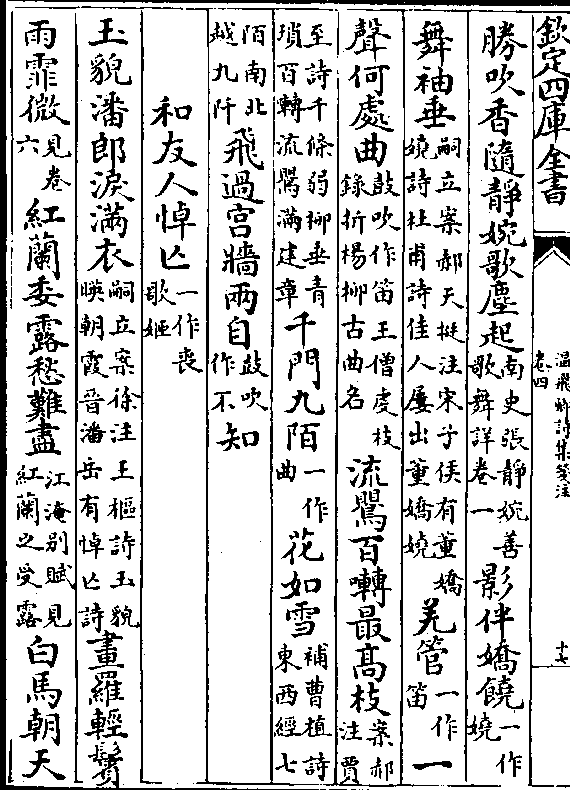 欽定四庫全書
溫飛卿詩集箋注
卷四
十七
勝吹香隨靜婉歌塵起南史張靜婉善歌舞詳卷一影伴嬌饒一作嬈
舞袖垂嗣立案郝天挺注宋子侯有董嬌嬈詩杜甫詩佳人屢出董嬌嬈羌管一作笛一
聲何處曲鼓吹作笛王僧虔枝錄折楊柳古曲名流鶯百囀最高枝案郝注賈
至詩千條弱柳垂青瑣百轉流鶯滿建章千門九陌一作曲花如雪補曹植詩東西經七
陌南北越九阡飛過宮牆兩自鼓吹作不知
和友人悼亡一作喪歌姬
玉貌潘郎淚滿衣嗣立案徐注王樞詩玉貌暎朝霞晉潘岳有悼亡詩畫羅輕鬢
雨霏微見卷六紅蘭委露愁難盡江淹別賦見紅蘭之受露白馬朝天